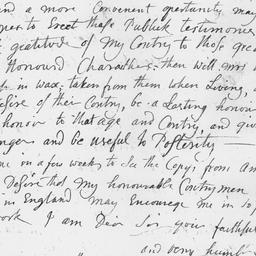 and a more Convenient opertunity may
to Erect those Publick testimonies
gratitude of My Contry to those grea
Honourd Characthers then will Mrs
in wax, taken from them when Living,
desire of their Contry, be a Lasting honour
honor to that age and Contry, and giv
and be useful to Posterity —
me in a few weeks to See the Copys, from Am
Desire that My honourable Contrymen
in England may Encourage me in so
work I am Dear Sir your faithful
and very humb